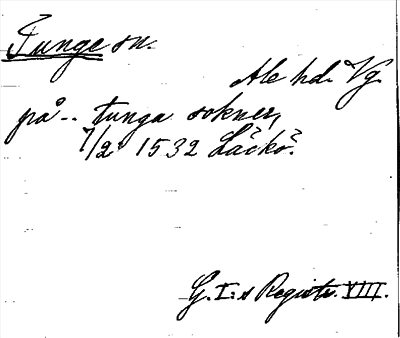 Tunge sn.
Ale hd. Vg.
på .. tunga sokner,
7/2 1532 Läckö.
G. I:s Registr. VIII.